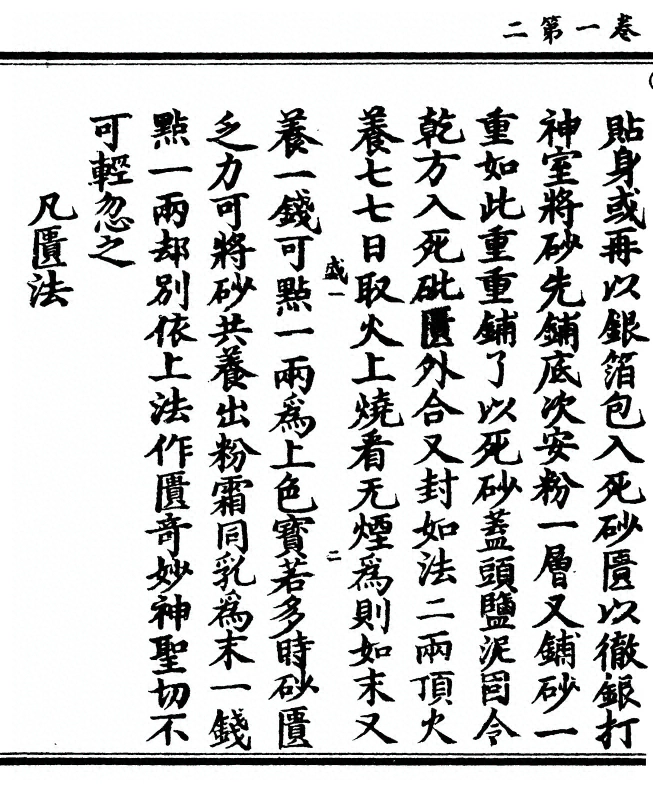 卷一第二
貼身或再以銀箔包入死砂匱以徹銀打
神室將砂先鋪底次安粉一層又鋪砂一
重如此重重鋪了以死砂蓋頭鹽泥固令
乾方入死砒匱外合又封如法二兩頂火
養七七日取火上燒看无煙為則如末又
盛一
二
養一錢可點一兩為上色寶若多時砂匱
乏力可將砂共養出粉霜同乳為末一錢
點一兩却別依上法作匱奇妙神聖切不
可輕忽之
凡匱法